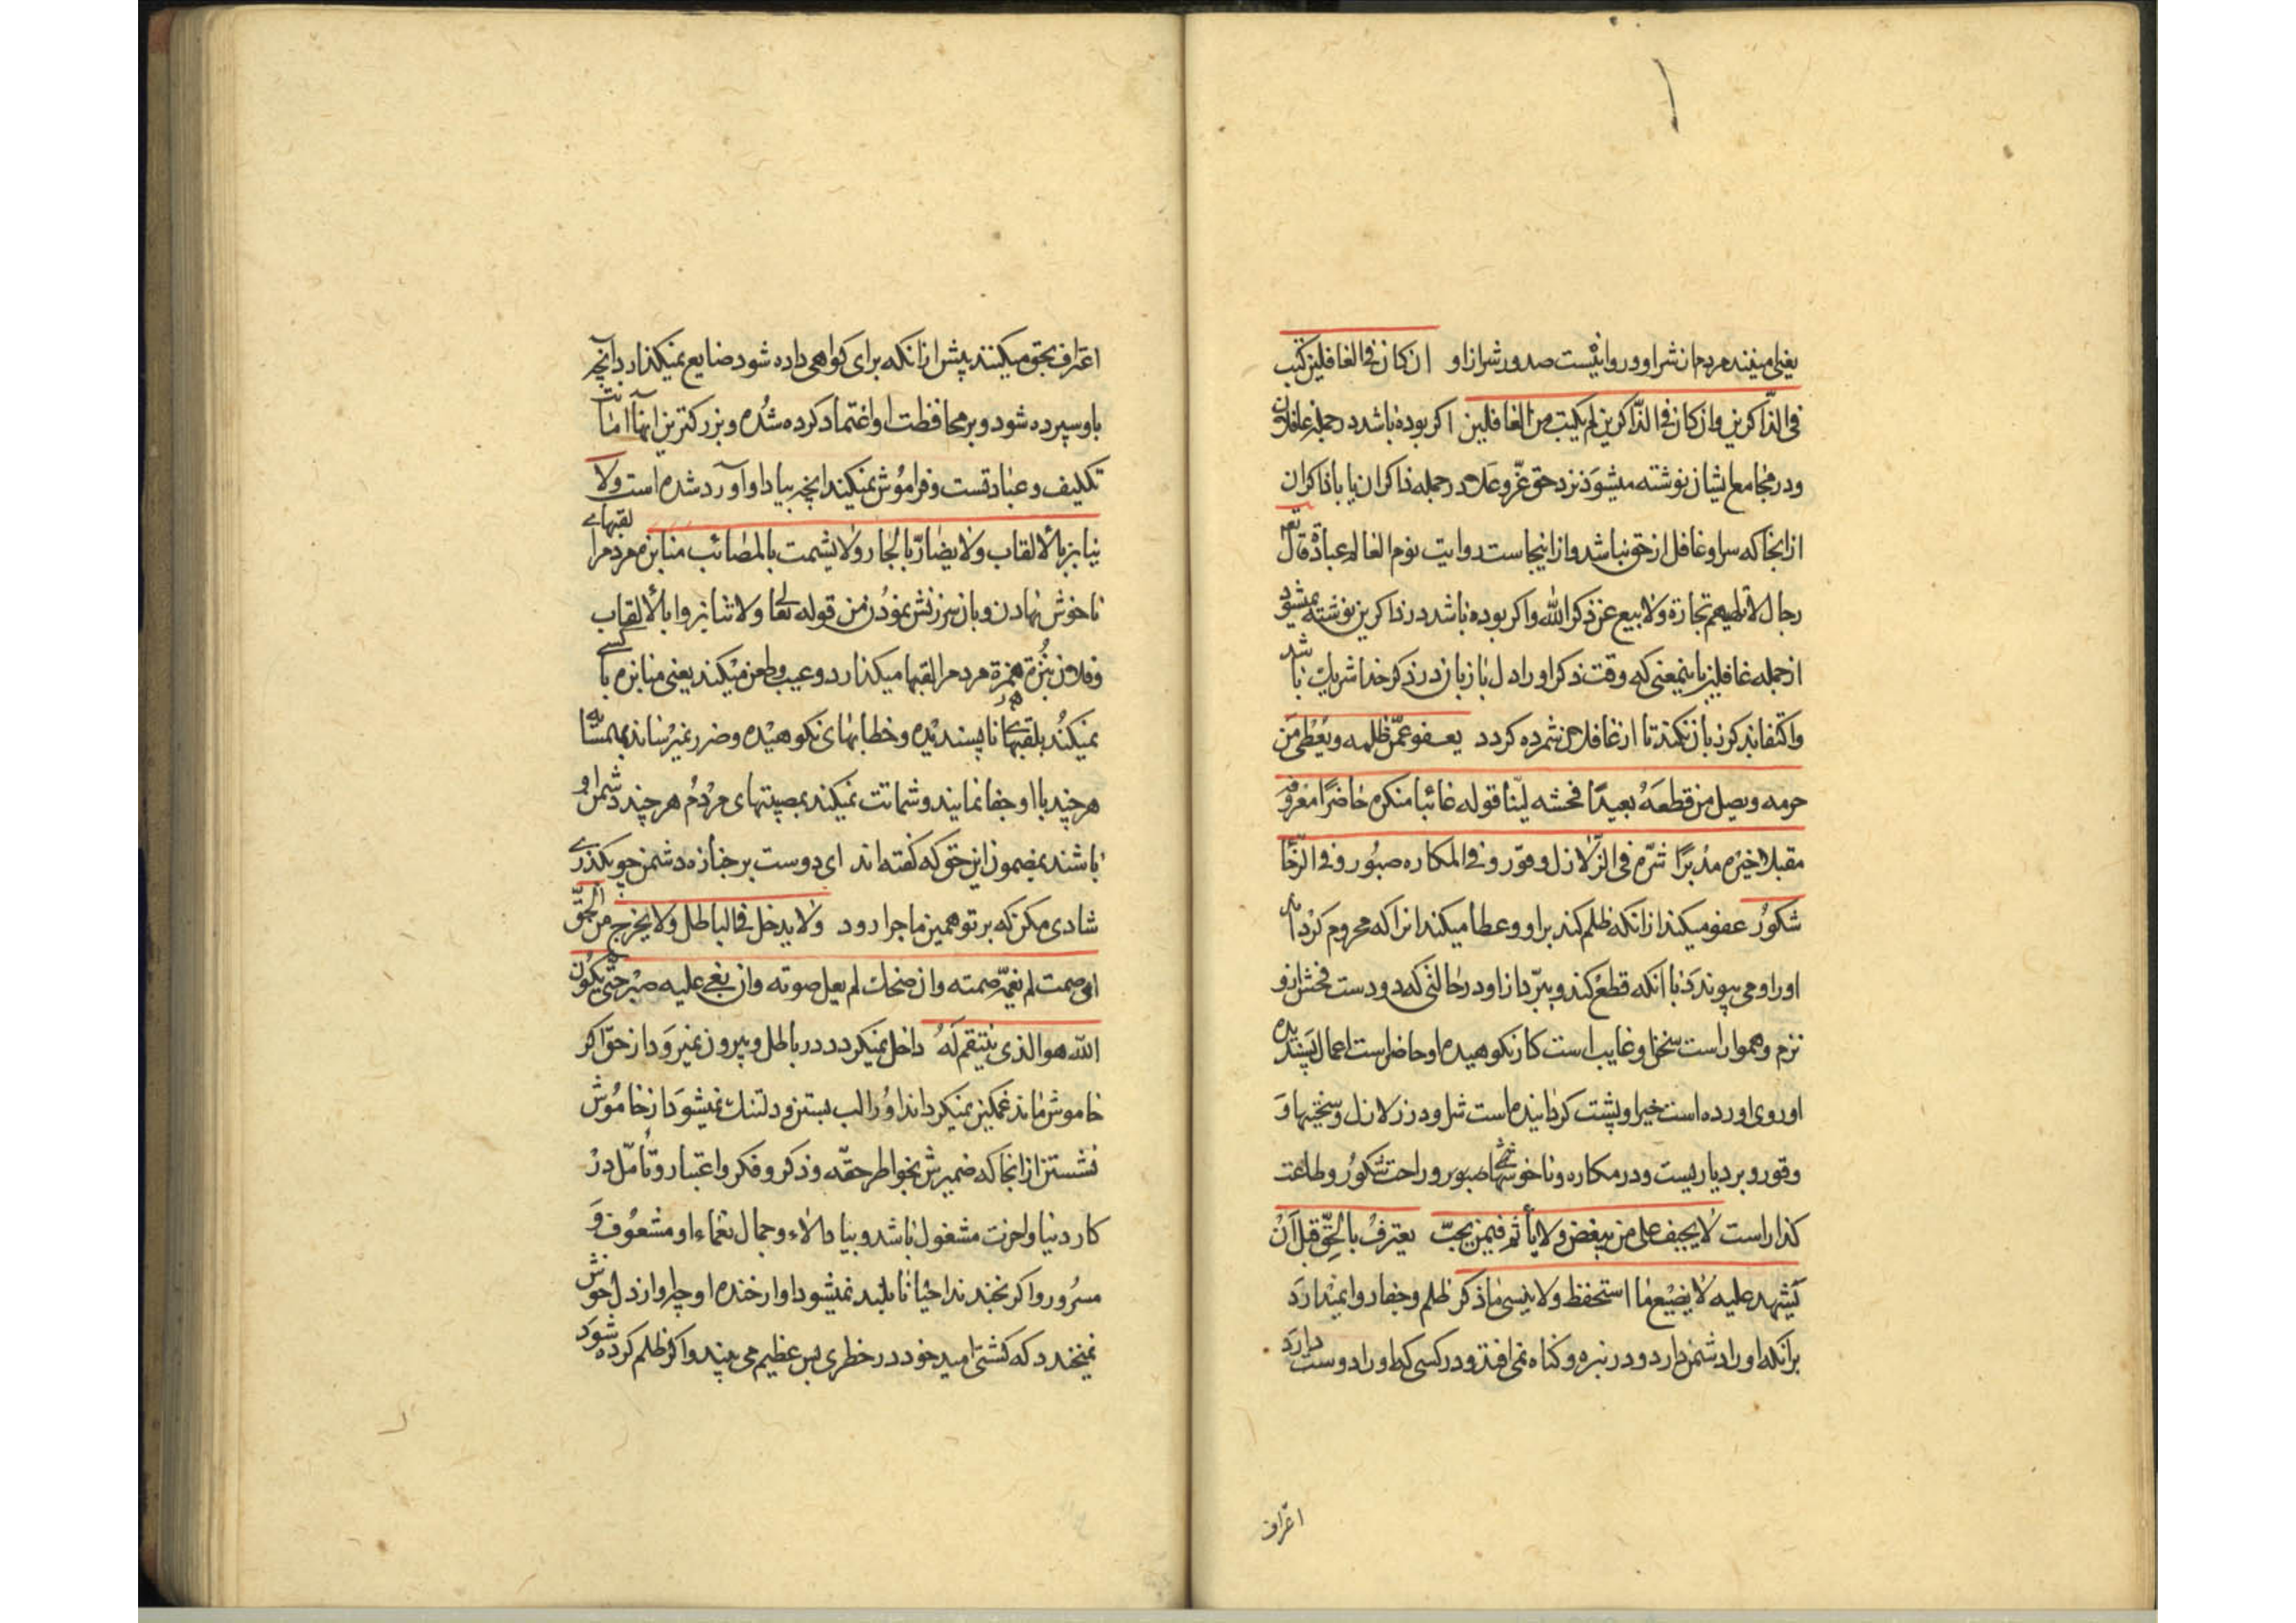 یعنی میبینند مردمان شر او و روا نیست صدور شر از او ان کان فی الغافلین کتب
فی الذاکرین وان کان فی الذاکرین لم یکتب من الغافلین اکر بوده باشد در جمله غافلان
و در مجامع ایشان نوشته میشود نزد حق عزّ و علا در جمله ذاکران یا با ذاکران
از انجا که سر او غافل از حق نباشد و از اینجاست روایت نوم العالم عبادة قال تعه
رجال لا تلهیهم تجارة ولا بیع عن ذکر الله واکر بوده باشد در ذاکرین نوشته نمیشود
از جمله غافلین باینمعنی که وقت ذکر او را دل با زبان در ذکر خدا شریک باشد
واکتفا بذکر زبان نکند تا از غافلان شمرده کردد یعفو عمّن ظلمه ویُعْطی مَن
حرمه ویصل من قطعَهُ بعیدًا فحشه لیّنا قوله غائبا منکره حاضرًا معروفه
مقبلا خیره مدبرًا شرّه فی الزلازل وقور و فی المکاره صبور و فی الرّخا
شکورٌ عفو میکند از انکه ظلم کند بر او و عطا میکند انرا که محروم کرداند
او را و می پیوندد با انکه قطع کند و ببرّد از او در حالتی که دورست فحش از او
نرم و هموار است سخن او غایب است کار نکوهیده او حاضر است اعمال پسندیده
او روی اورده است خیر او پشت کرداینده است شر او در زلازل و سختیها وَ
وقور و بردباریست و در مکاره و ناخوشیها صبور و راحت شکورُ و طاعت
کذار است لا یحیف علی من یبغض ولا یأثم فیمن یحبّ یعترفُ بالحقّ قبل اَنْ
یُشهد علیه لا یضیْع ما استحفظ ولا ینسی ما ذکر ظلم و جفا روا نمیدارد
بر انکه او را دشمن دارد و در بزه و کناه نمی افتد و در کسی که او را دوست دارد
اعتراف
اعتراف بحق میکنند پیش از انکه برای کواهی داده شود ضایع نمیکذارد آنچه
باو سپرده شود و بر محافظت او اعتماد کرده شده و بزرکترین اینها امانت
تکلیف و عبادتست و فراموش نمیکند انچه بیاد او آورد شده است ولا
ینابز بالالقاب ولا یضارّ بالجار ولا یشمت بالمصائب منابزه مردم را لقبهای
ناخوش نهادن و بان سرزنش نمودن من قوله تعالی ولا تنابزوا بالألقاب
و فلان نبُزة همزة مردم را لقبها میکذارد و عیب و طعن میکند یعنی منابزه با کسی
نمیکُند بلقبهای ناپسندیده و خطابهای نکوهیده و ضرر نمیرساند بهمسایه
هر چند با او جفا نمایند و شماتت نمیکند بمصیبتهای مردُم هر چند دشمن او
باشند بمضمون این حق که کفته اند ای دوست بر جنازه دشمن چو بکذری
شادی مکن که بر تو همین ماجرا رود ولا یدخل فی الباطل ولا یخرج من الحقّ
ان صمت لم یغمّه صمته وان ضحک لم یعل صوته وان بغی علیه صبر حتّی یکون
الله هو الذی ینتقم لَهُ داخل نمیکردد در باطل و بیرون نمیرود از حق اکر
خاموش ماند غمکین نمیکرداند او را لب بستن و دلتنک نمیشود از خاموش
نشستن از انجا که ضمیرش بخواطر حقّه و ذکر و فکر و اعتبار و تأمّل درْ
کار دنیا و اخرت مشغول باشد و بیاد الاء و جمال نعماء او مشعوف وَ
مسرور و اکر بخندد احیانا بلند نمیشود اواز خنده او چرا و از دل خوش
نمیخندد که کشتی امید خود در خطری بس عظیم می بیند و اکر ظلم کرده شود